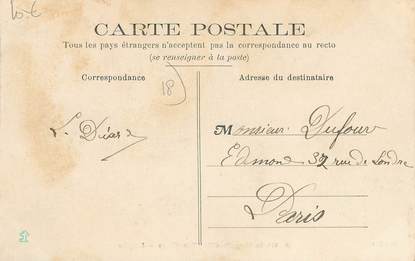 10-€
CARTE POSTALE
Tous les pays étrangers n'acceptent pas la correspondance au recto
(se renseigner à la poste)
Correspondance
Adresse du destinataire
18
Monsieur Dufour
Edmond 37 rue de Londre
Paris